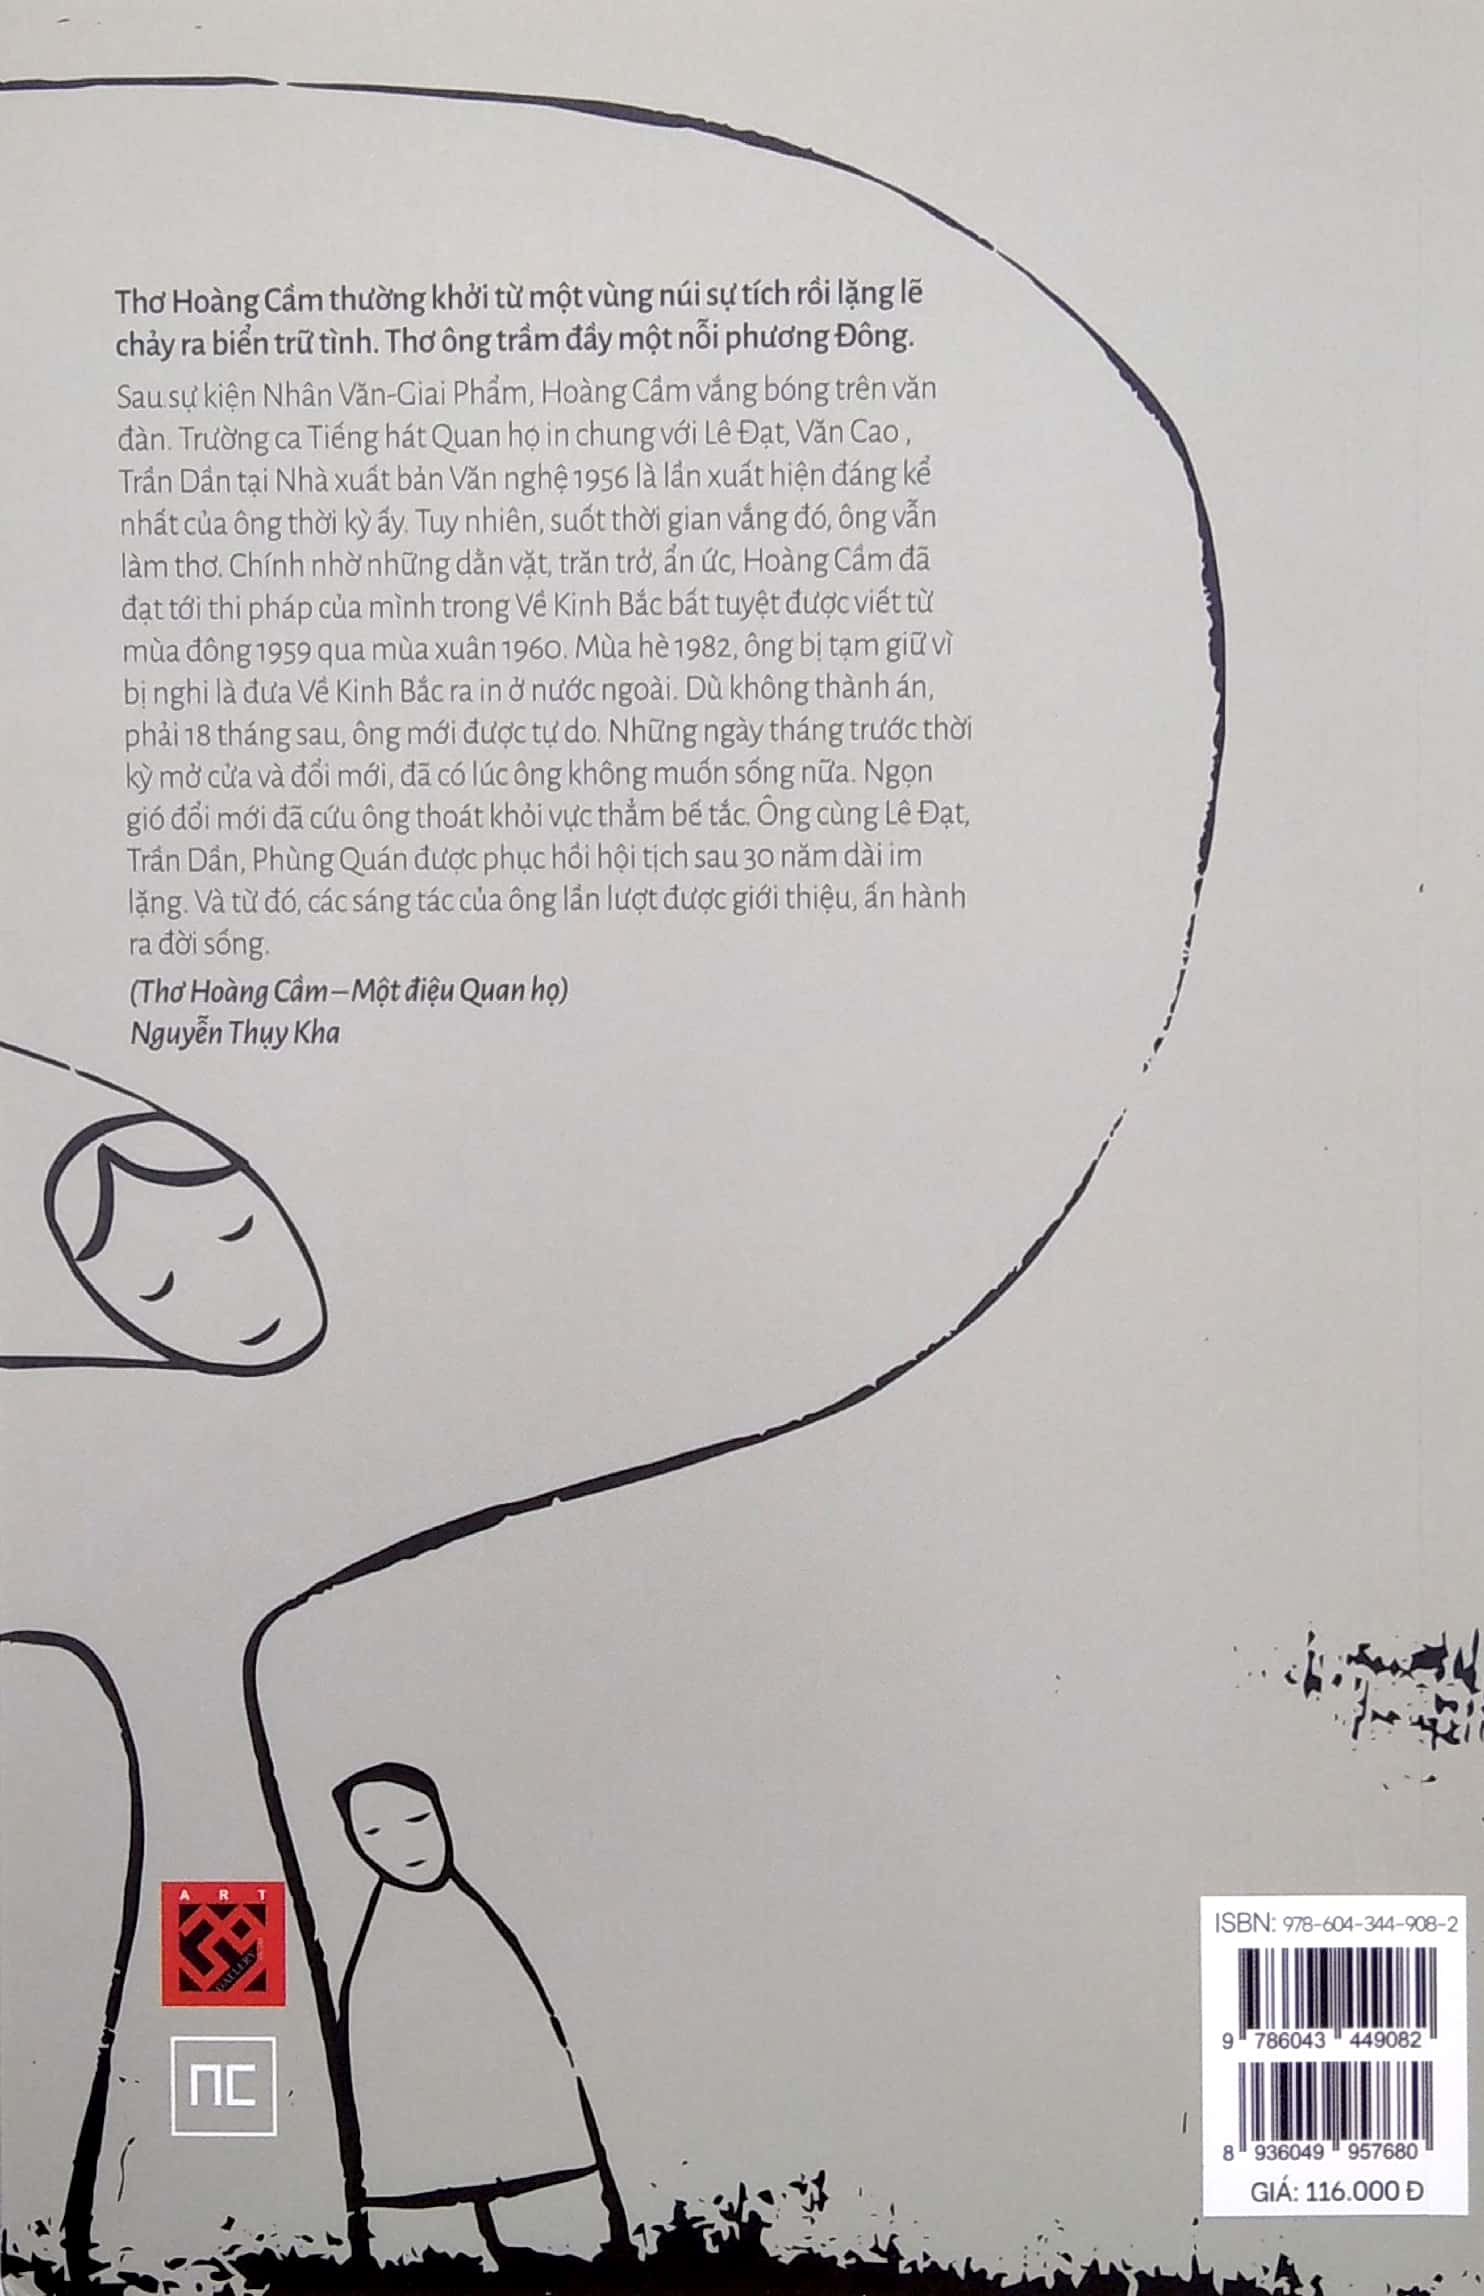 Thơ Hoàng Cầm thường khởi từ một vùng núi sự tích rồi lặng lẽ
chảy ra biển trữ tình. Thơ ông trầm đầy một nỗi phương Đông.
Sau sự kiện Nhân Văn-Giai Phẩm, Hoàng Cầm vắng bóng trên văn
đàn. Trường ca Tiếng hát Quan họ in chung với Lê Đạt, Văn Cao ,
Trần Dần tại Nhà xuất bản Văn nghệ 1956 là lần xuất hiện đáng kể
nhất của ông thời kỳ ấy. Tuy nhiên, suốt thời gian vắng đó, ông vẫn
làm thơ. Chính nhờ những dằn vặt, trăn trở, ẩn ức, Hoàng Cầm đã
đạt tới thi pháp của mình trong Về Kinh Bắc bất tuyệt được viết từ
mùa đông 1959 qua mùa xuân 1960. Mùa hè 1982, ông bị tạm giữ vì
bị nghi là đưa Về Kinh Bắc ra in ở nước ngoài. Dù không thành án,
phải 18 tháng sau, ông mới được tự do. Những ngày tháng trước thời
kỳ mở cửa và đổi mới, đã có lúc ông không muốn sống nữa. Ngọn
gió đổi mới đã cứu ông thoát khỏi vực thẳm bế tắc. Ông cùng Lê Đạt,
Trần Dần, Phùng Quán được phục hồi hội tịch sau 30 năm dài im
lặng. Và từ đó, các sáng tác của ông lần lượt được giới thiệu, ấn hành
ra đời sống.
(Thơ Hoàng Cầm – Một điệu Quan họ)
Nguyễn Thụy Kha
ART
GALLERY
NC
ISBN: 978-604-344-908-2
9 786043 449082
8 936049 957680
GIÁ: 116.000 Đ